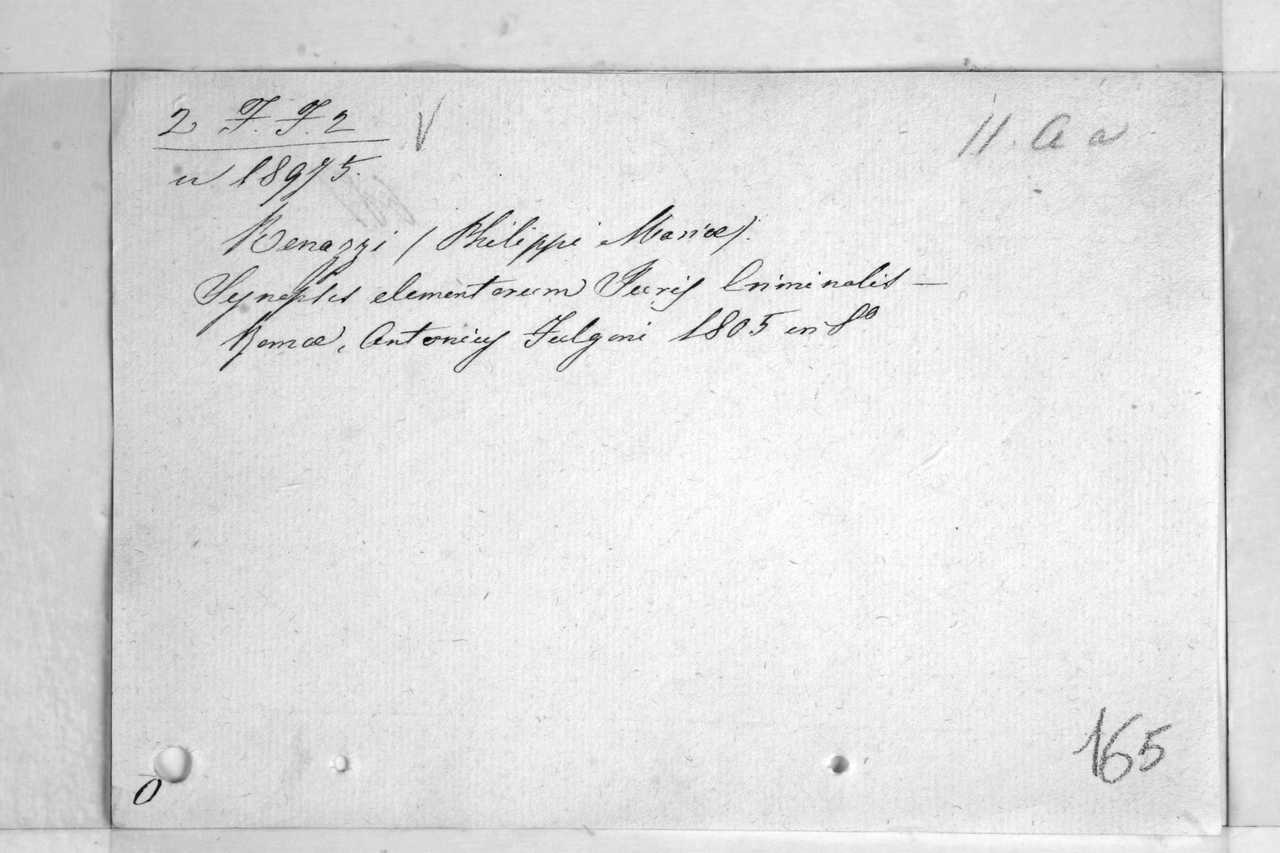 2 F. F. 2 V H. Aa
n 18975.
Renazzi (Philippi Mariæ).
Synopsis elementorum Juris Criminalis —
Romæ, Antonius Fulgoni 1805 in 8º
165
0